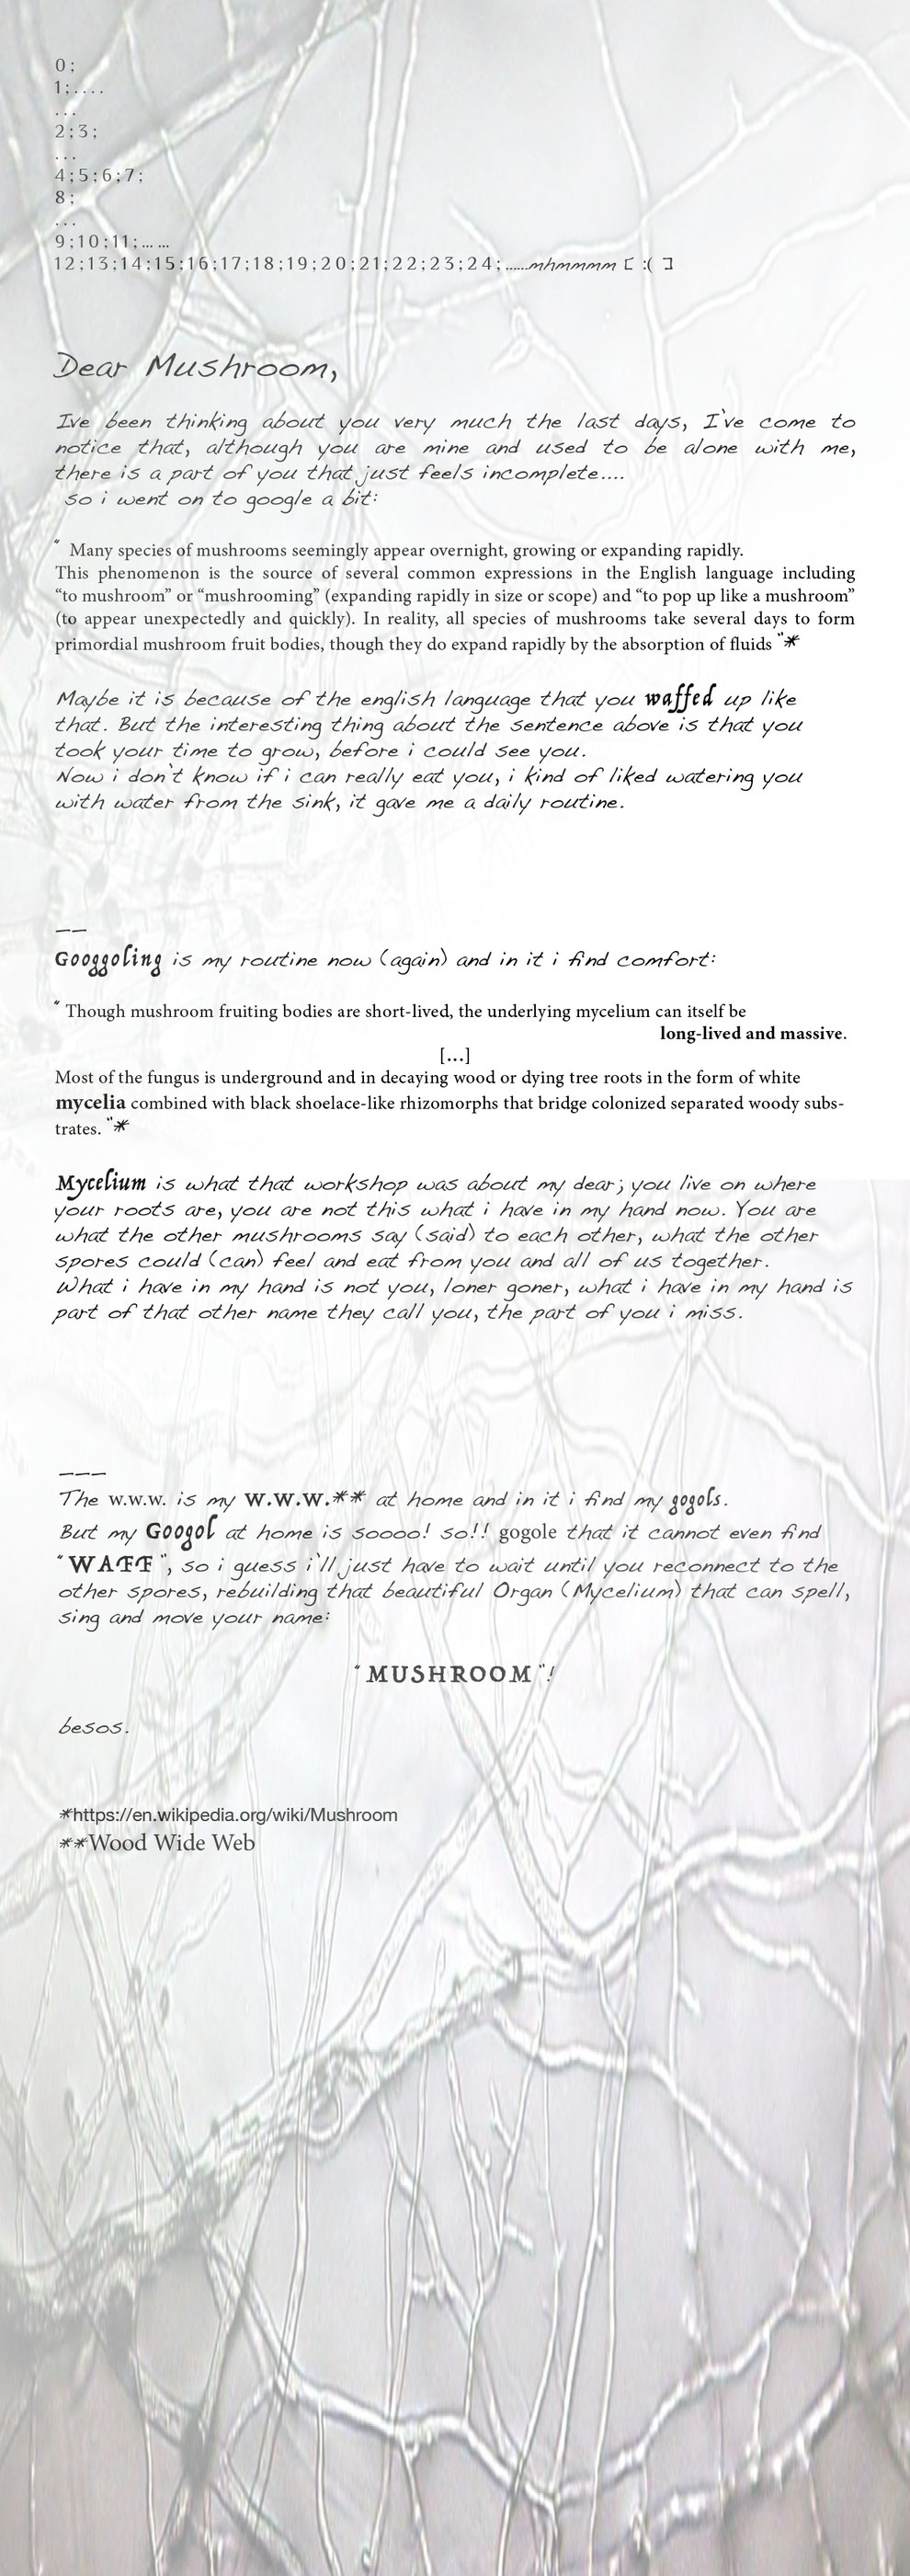 0;
1;....
...
2;3;
...
4;5;6;7;
8;
...
9;10;11;... ...
12;13;14;15;16;17;18;19;20;21;22;23;24;......mhmmmm [ :( ]
Dear Mushroom,
Ive been thinking about you very much the last days, I've come to
notice that, although you are mine and used to be alone with me,
there is a part of you that just feels incomplete....
so i went on to google a bit:
" Many species of mushrooms seemingly appear overnight, growing or expanding rapidly.
This phenomenon is the source of several common expressions in the English language including
“to mushroom” or “mushrooming” (expanding rapidly in size or scope) and “to pop up like a mushroom”
(to appear unexpectedly and quickly). In reality, all species of mushrooms take several days to form
primordial mushroom fruit bodies, though they do expand rapidly by the absorption of fluids "*
Maybe it is because of the english language that you waffed up like
that. But the interesting thing about the sentence above is that you
took your time to grow, before i could see you.
Now i don't know if i can really eat you, i kind of liked watering you
with water from the sink, it gave me a daily routine.
__
Googgoling is my routine now (again) and in it i find comfort:
" Though mushroom fruiting bodies are short-lived, the underlying mycelium can itself be
long-lived and massive.
[...]
Most of the fungus is underground and in decaying wood or dying tree roots in the form of white
mycelia combined with black shoelace-like rhizomorphs that bridge colonized separated woody subs-
trates. "*
Mycelium is what that workshop was about my dear; you live on where
your roots are, you are not this what i have in my hand now. You are
what the other mushrooms say (said) to each other, what the other
spores could (can) feel and eat from you and all of us together.
What i have in my hand is not you, loner goner, what i have in my hand is
part of that other name they call you, the part of you i miss.
___
The w.w.w. is my w.w.w.** at home and in it i find my gogols.
But my Googol at home is soooo! so!! gogole that it cannot even find
"WAFF", so i guess i'll just have to wait until you reconnect to the
other spores, rebuilding that beautiful Organ (Mycelium) that can spell,
sing and move your name:
"MUSHROOM"!
besos.
*https://en.wikipedia.org/wiki/Mushroom
**Wood Wide Web